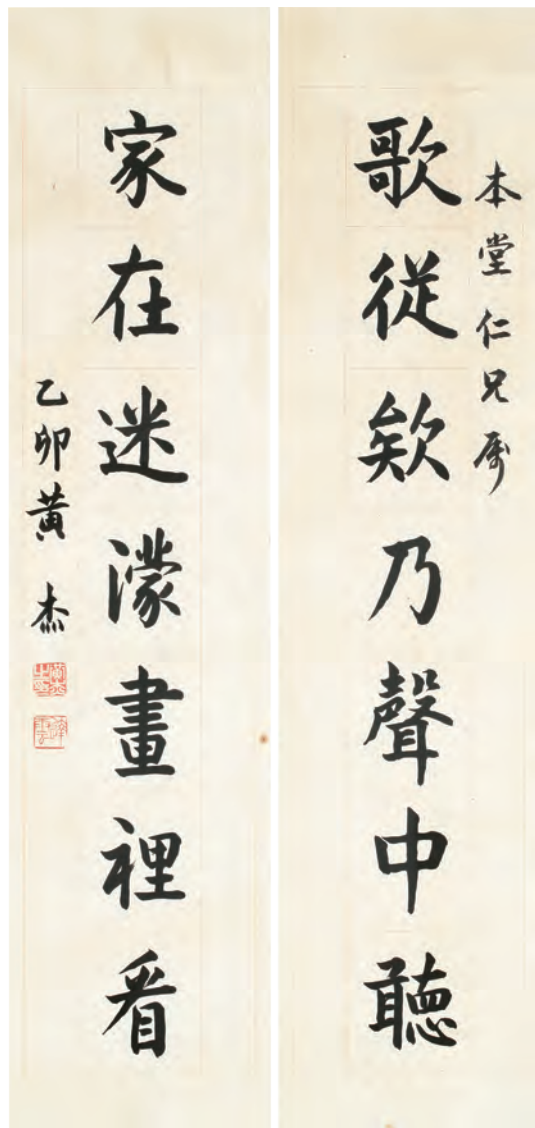 本堂仁兄属
歌從欸乃聲中聽
家在迷濛畫裡看
乙卯黃杰